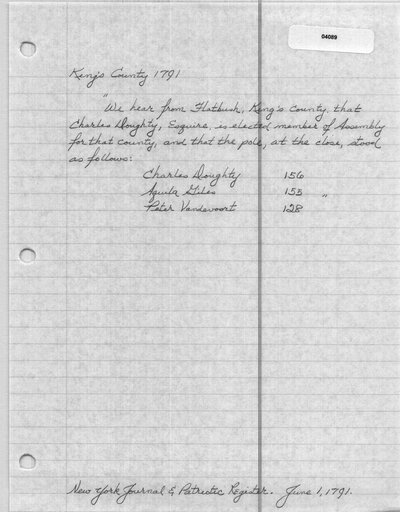 04089
King's County 1791
"We hear from Flatbush, King's County, that
Charles Doughty, Esquire, is elected member of Assembly
for that county, and that the pole, at the close, stood
as follows:
Charles Doughty 156
Aquila Giles 155 "
Peter Vandevoort 128
New York Journal & Patriotic Register. June 1, 1791.